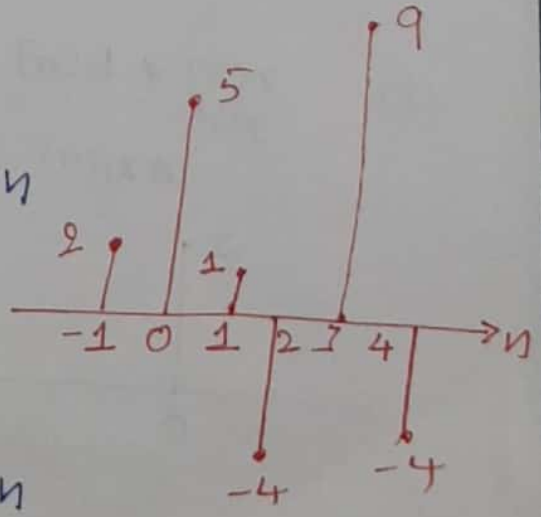 9
5
n
2
1
-1 0 1 2 3 4 n
-4 -4
n